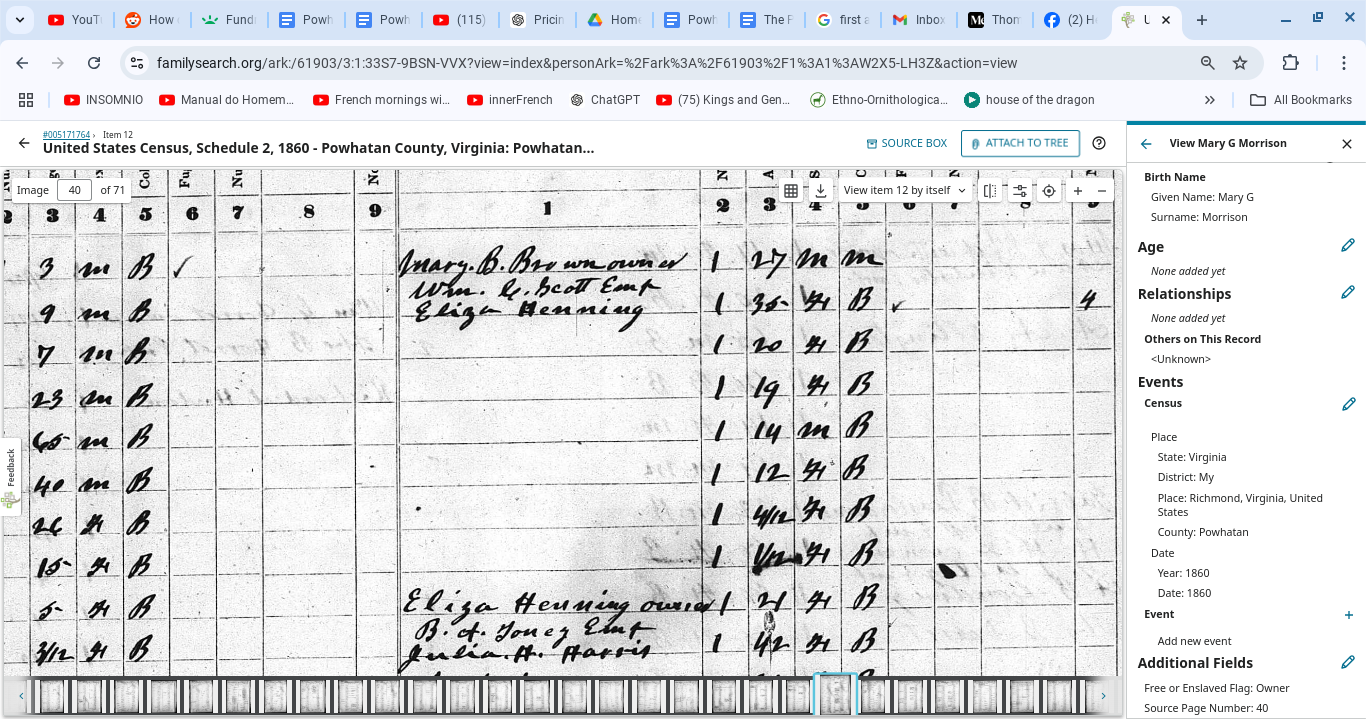 YouT
How
Fund
Powh
Powh
(115)
Pricin
Home
Powh
The F
first a
Inbox
Thon
(2) H
U
familysearch.org/ark:/61903/3:1:33S7-9BSN-VVX?view=index&personArk=%2Fark%3A%2F61903%2F1%3A1%3AW2X5-LH3Z&action=view
INSOMNIO
Manual do Homem...
French mornings wi...
innerFrench
ChatGPT
(75) Kings and Gen...
Ethno-Ornithologica...
house of the dragon
All Bookmarks
#005171764 › Item 12
United States Census, Schedule 2, 1860 - Powhatan County, Virginia: Powhatan...
SOURCE BOX
ATTACH TO TREE
Image 40 of 71
View item 12 by itself
3 4 5 6 7 8 9 1 2 3 4 5 6 7 8 9
3 m B ✓ Mary. B. Brown owner 1 27 m m
Wm. C. Scott Emp
9 m B Eliza Henning 1 35 F B ✓ 4
7 m B 1 20 F B
23 m B 1 19 F B
65 m B 1 14 m B
40 m B 1 12 F B
26 F B 1 4/12 F B
15 F B 1 1/12 F B
5 F B Eliza Henning owner 1 21 F B
B. A. Toney Emp
3/12 F B Julia. H. Harris 1 42 F B
Feedback
View Mary G Morrison
Birth Name
Given Name: Mary G
Surname: Morrison
Age
None added yet
Relationships
None added yet
Others on This Record
<Unknown>
Events
Census
Place
State: Virginia
District: My
Place: Richmond, Virginia, United
States
County: Powhatan
Date
Year: 1860
Date: 1860
Event
Add new event
Additional Fields
Free or Enslaved Flag: Owner
Source Page Number: 40